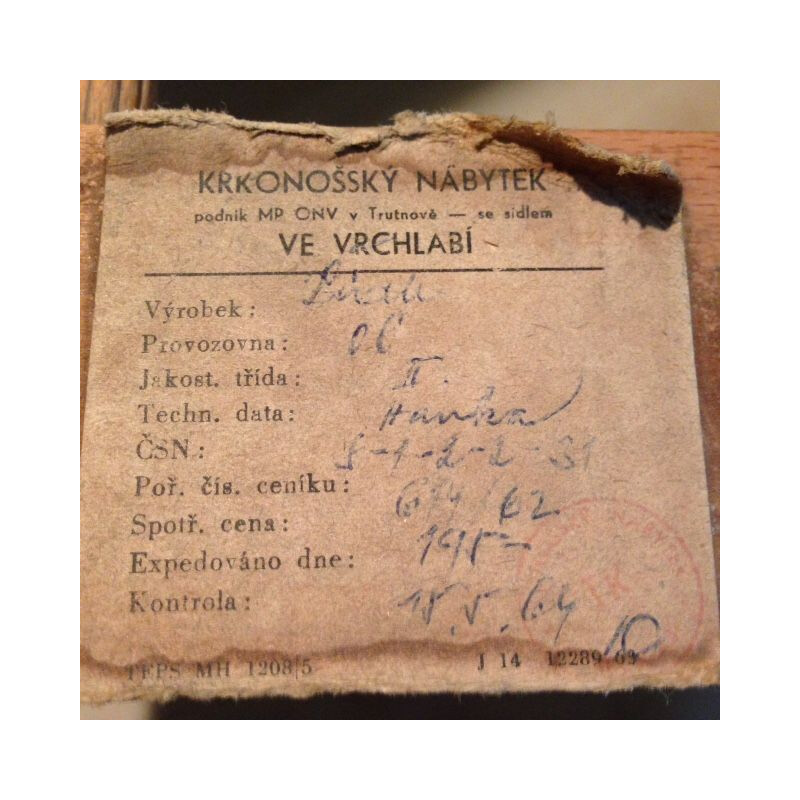 KRKONOŠSKÝ NÁBYTEK
podnik MP ONV v Trutnově — se sídlem
VE VRCHLABÍ
Výrobek:
Provozovna: 06
Jakost. třída: II.
Techn. data: Hanka
ČSN:
Poř. čís. ceníku: 64/62
Spotř. cena: 195-
Expedováno dne:
Kontrola: 15.5.64
TEPS MH 1208/5 J 14 12289 63